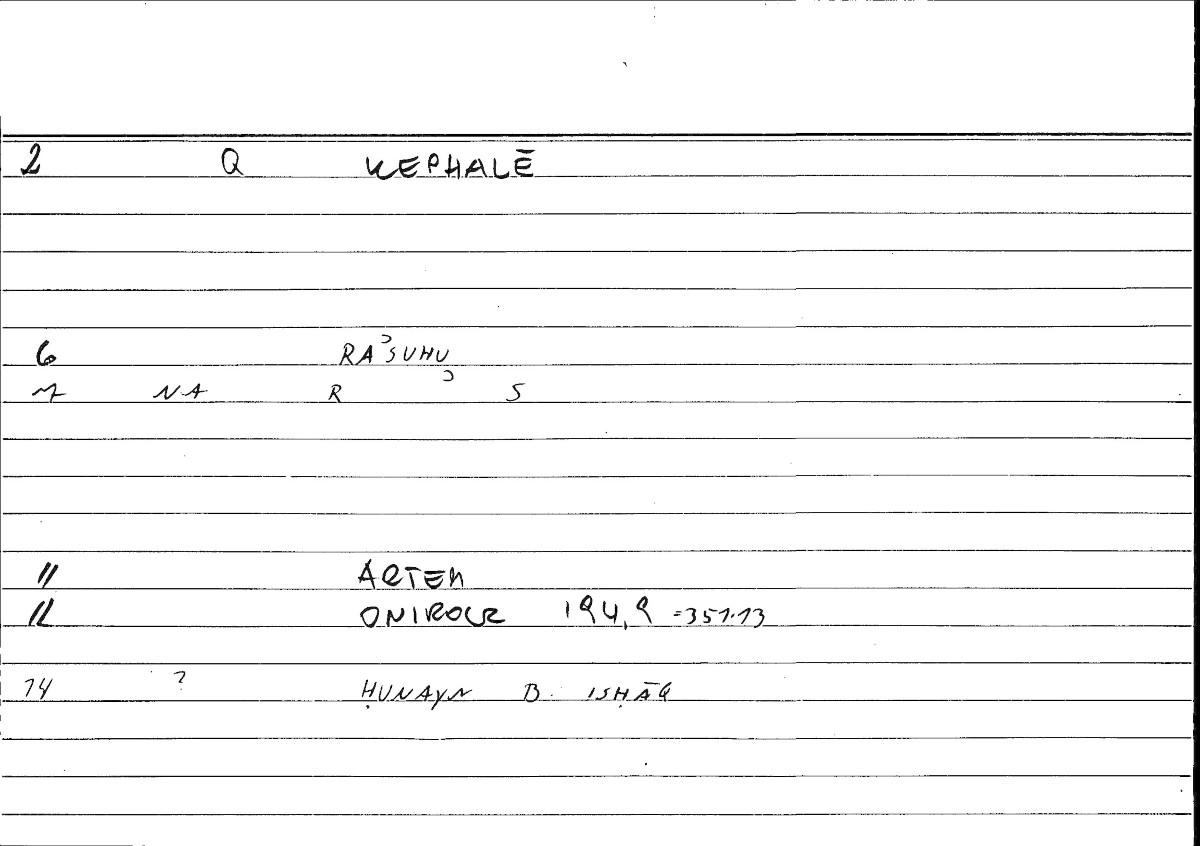 2 Q KEPHALĒ
6 RAʾSUHU
7 NA R ʾ S
11 ARTEM
12 ONIROCR 194,9 =351.13
14 ? ḤUNAYN B. ISḤĀQ